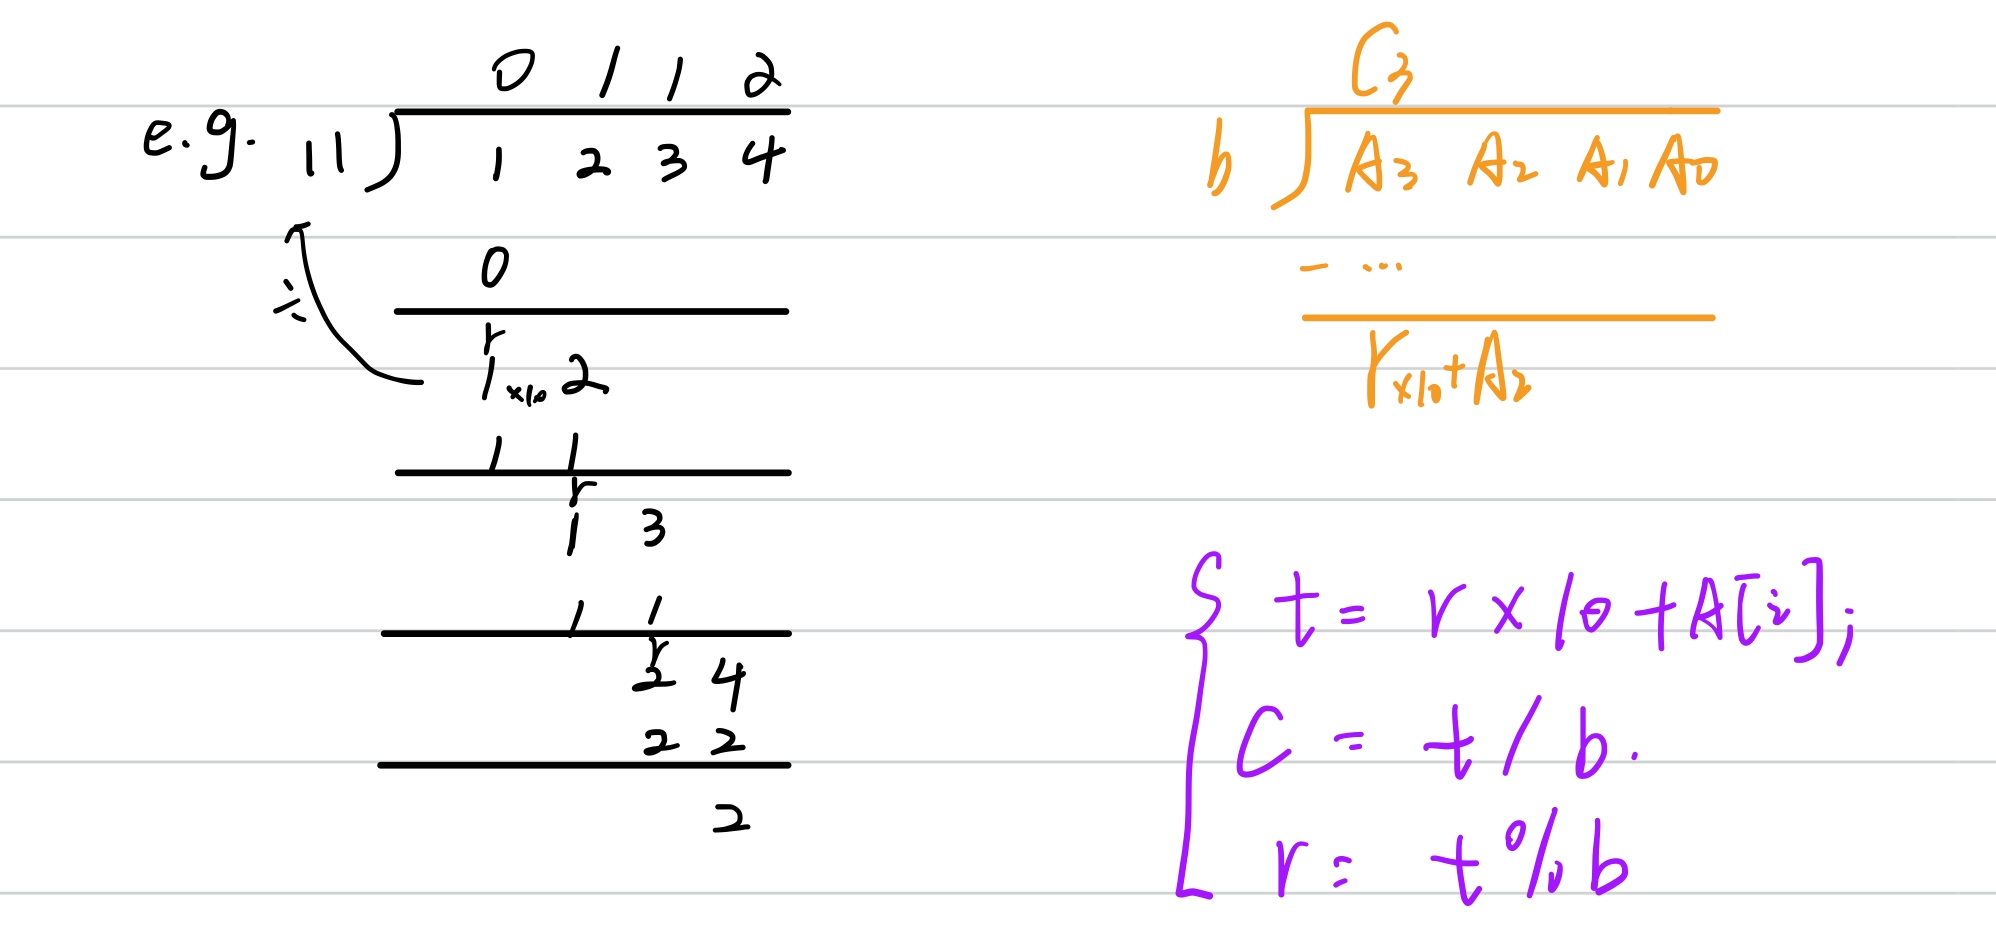 0 1 1 2
e.g. 11 ) 1 2 3 4
0
÷
r
1 ×10 2
1 1
r
1 3
1 1
r
2 4
2 2
2
C3
b ) A3 A2 A1 A0
- ...
r×10+A2
{ t = r × 10 + A[i];
C = t / b.
r = t % b